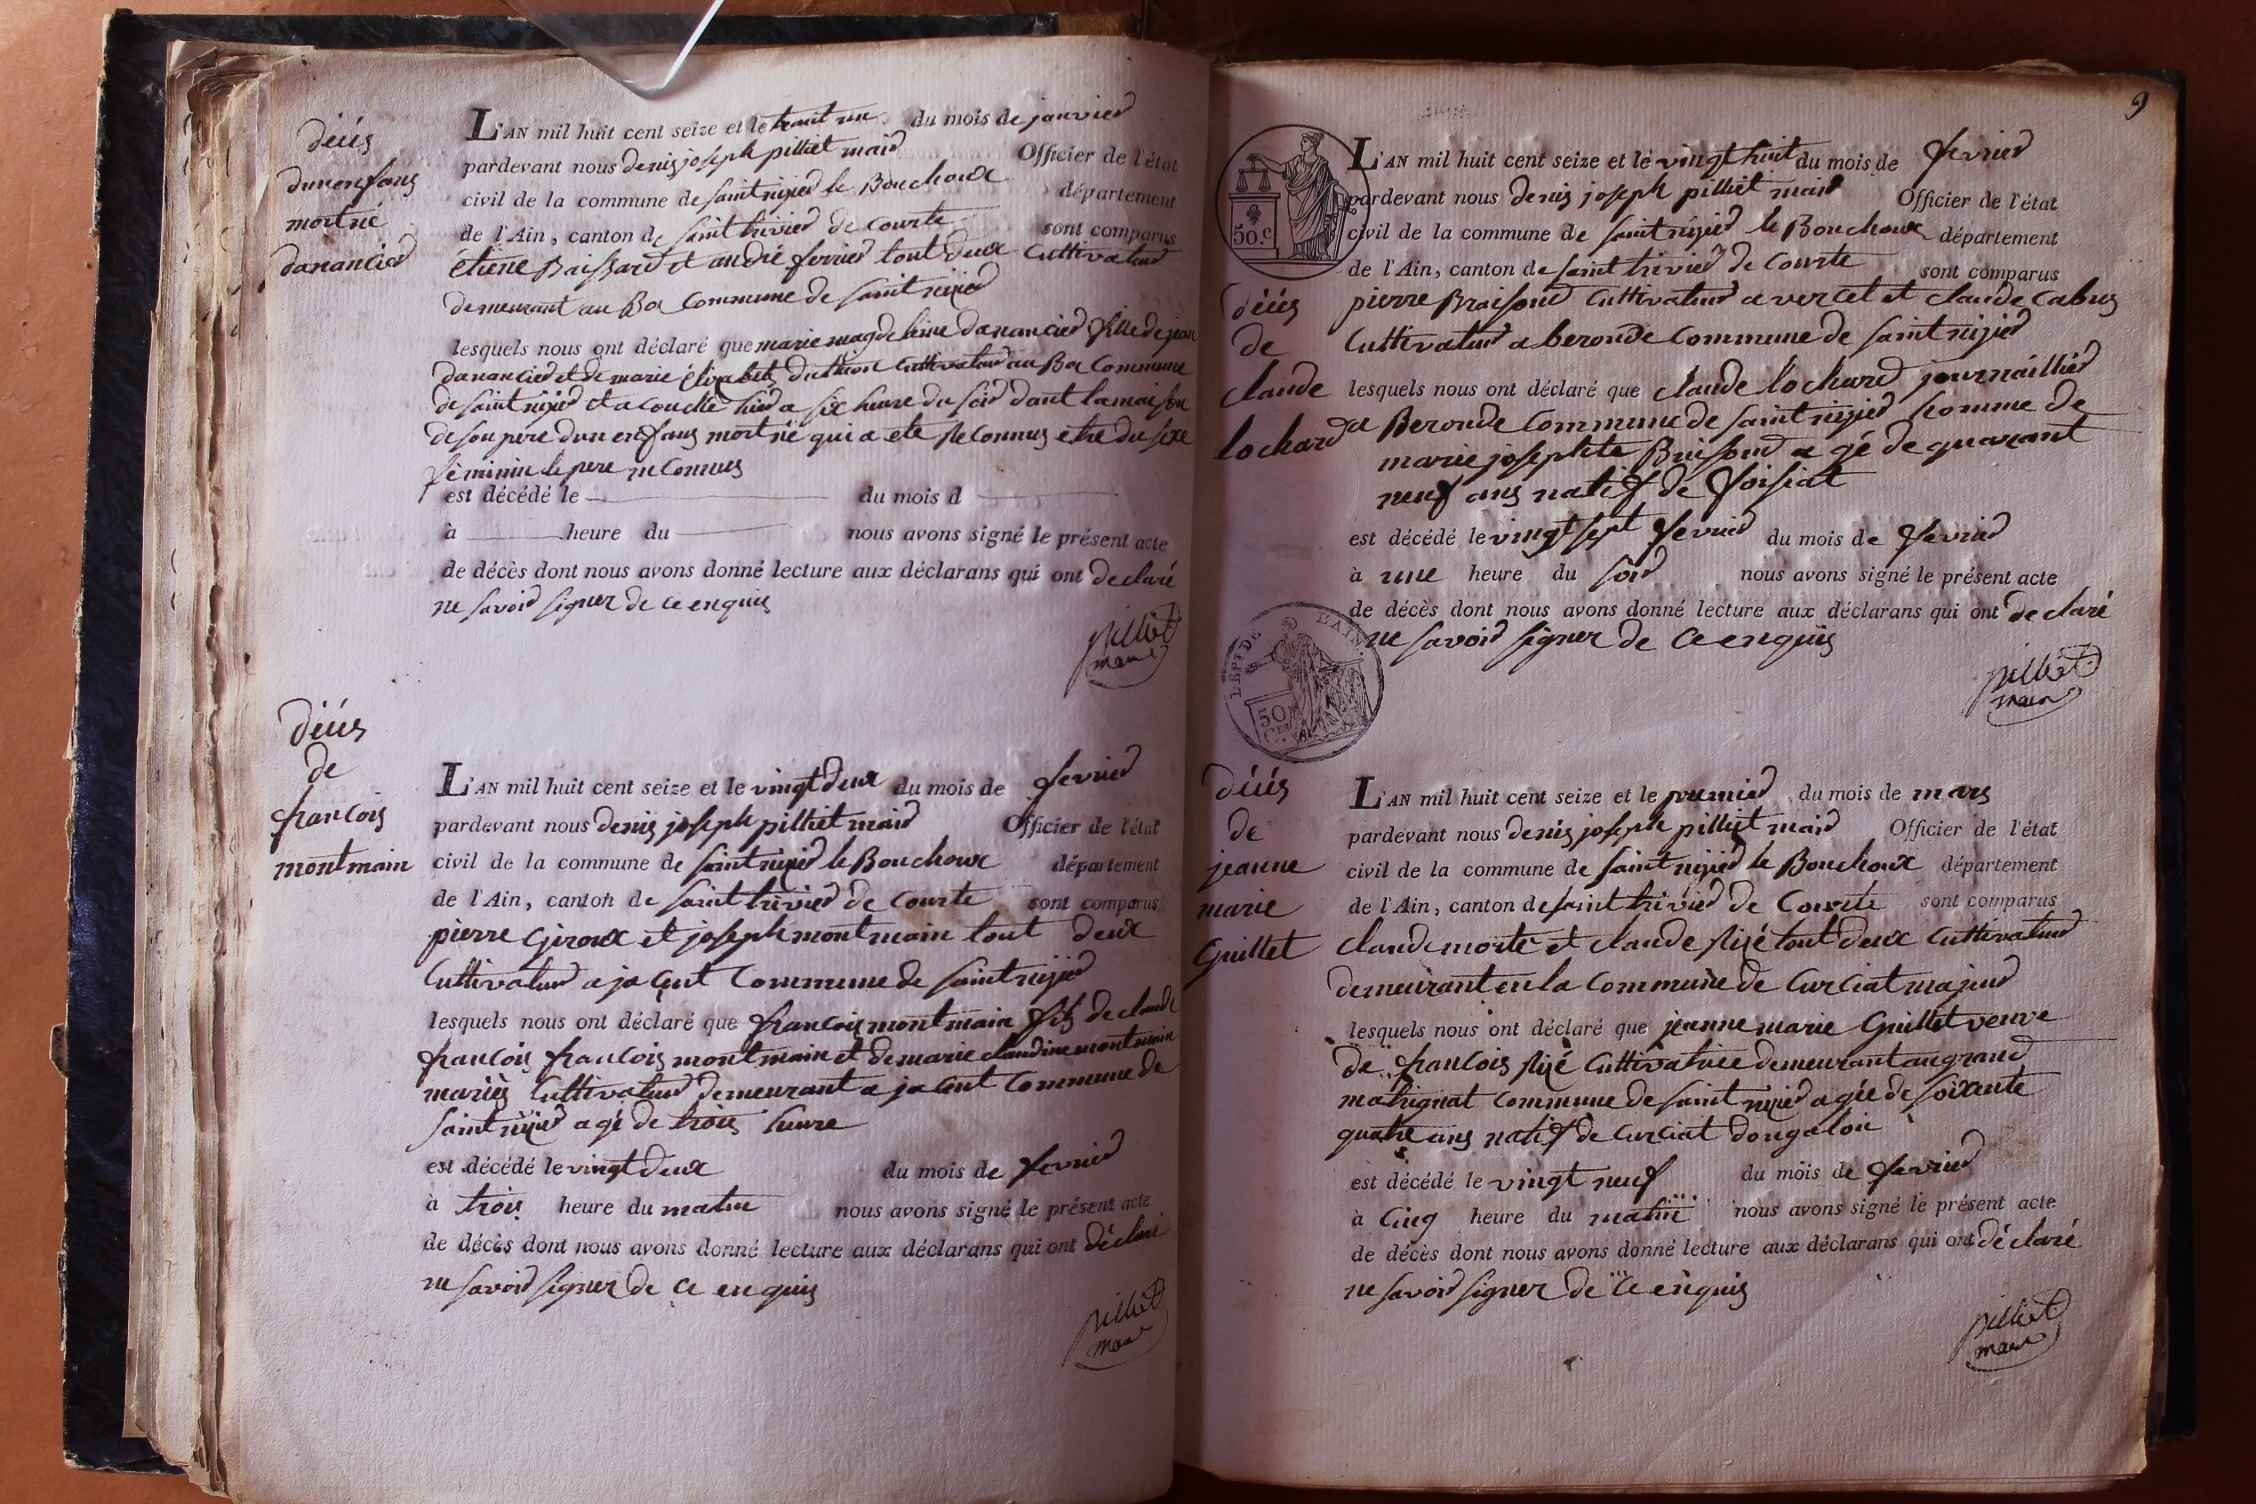 déces
dun enfans
mort né
danancied
L'AN mil huit cent seize et le trant un du mois de janvied
pardevant nous denis joseph pilliet maid Officier de l'état
civil de la commune de saint nizied le Bouchoux département
de l'Ain, canton de saint trivied de Courte sont comparus
etiene Baissard et andré ferried tout deux Cultivatued
demeurant au Ba Commune de saint nizied
lesquels nous ont déclaré que marie magdeleine danancied fille de jean
danancied et de marie Commune
de saint nizied et acouché hied a six heure du soid dant la maison
de son pere dun enfans mort né qui a été reconnus etre du sexe
féminin le pere inconnus
est décédé le du mois d
à heure du nous avons signé le présent acte
de décès dont nous avons donné lecture aux déclarans qui ont declaré
ne savoid signer de ce enquis
pilliet
maire
déces
de
francois
montmain
L'AN mil huit cent seize et le vingt deux du mois de fevried
pardevant nous denis joseph pilliet maid Officier de l'état
civil de la commune de saint nizied le Bouchoux département
de l'Ain, canton de saint trivied de Courte sont comparus
pierre Giroux et joseph montmain tout deux
Cultivatued a jacent Commune de saint nizied
lesquels nous ont déclaré que francois montmain fils de claude
francois francois montmain et de marie claudine montmain
mariés Cultivatued demeurant a jacent Commune de
saint nizied agé de trois heure
est décédé le vingt deux du mois de fevried
à trois heure du matin nous avons signé le présent acte
de décès dont nous avons donné lecture aux déclarans qui ont déclaré
ne savoid signer de ce enquis
pilliet
maire
9
50.c
L'AN mil huit cent seize et le vingt huit du mois de fevried
pardevant nous denis joseph pilliet maid Officier de l'état
civil de la commune de saint nizied le Bouchoux département
de l'Ain, canton de saint trivied de Courte sont comparus
pierre Braisond Cultivatued a vercel et claude Cabus
Cultivatued a beronde Commune de saint nizied
déces
de
claude
lochard
lesquels nous ont déclaré que claude lochard journaillied
a Beronde Commune de saint nizied homme de
marie josephte Buisond a gé de quarant
neuf ans natif de foisiat
est décédé le vingt sept fevried du mois de fevried
à une heure du soid nous avons signé le présent acte
de décès dont nous avons donné lecture aux déclarans qui ont declaré
ne savoid signer de ce enquis
50
pilliet
maire
déces
de
jeanne
marie
Guillet
L'AN mil huit cent seize et le premied du mois de mars
pardevant nous denis joseph pilliet maid Officier de l'état
civil de la commune de saint nizied le Bouchoux département
de l'Ain, canton de saint trivied de Courte sont comparus
claude morte et claude rizé tout deux Cultivatued
demeurant en la Commune de Curciat
lesquels nous ont déclaré que jeanne marie Guillet veuve
de francois rizé Cultivatrice demeurant au grand
matrignat Commune de saint nizied agée de soixante
quatre ans natif de Curciat dongalon
est décédé le vingt neuf du mois de fevried
à Cinq heure du matin nous avons signé le présent acte
de décès dont nous avons donné lecture aux déclarans qui ont déclaré
ne savoid signer de ce enquis
pilliet
maire